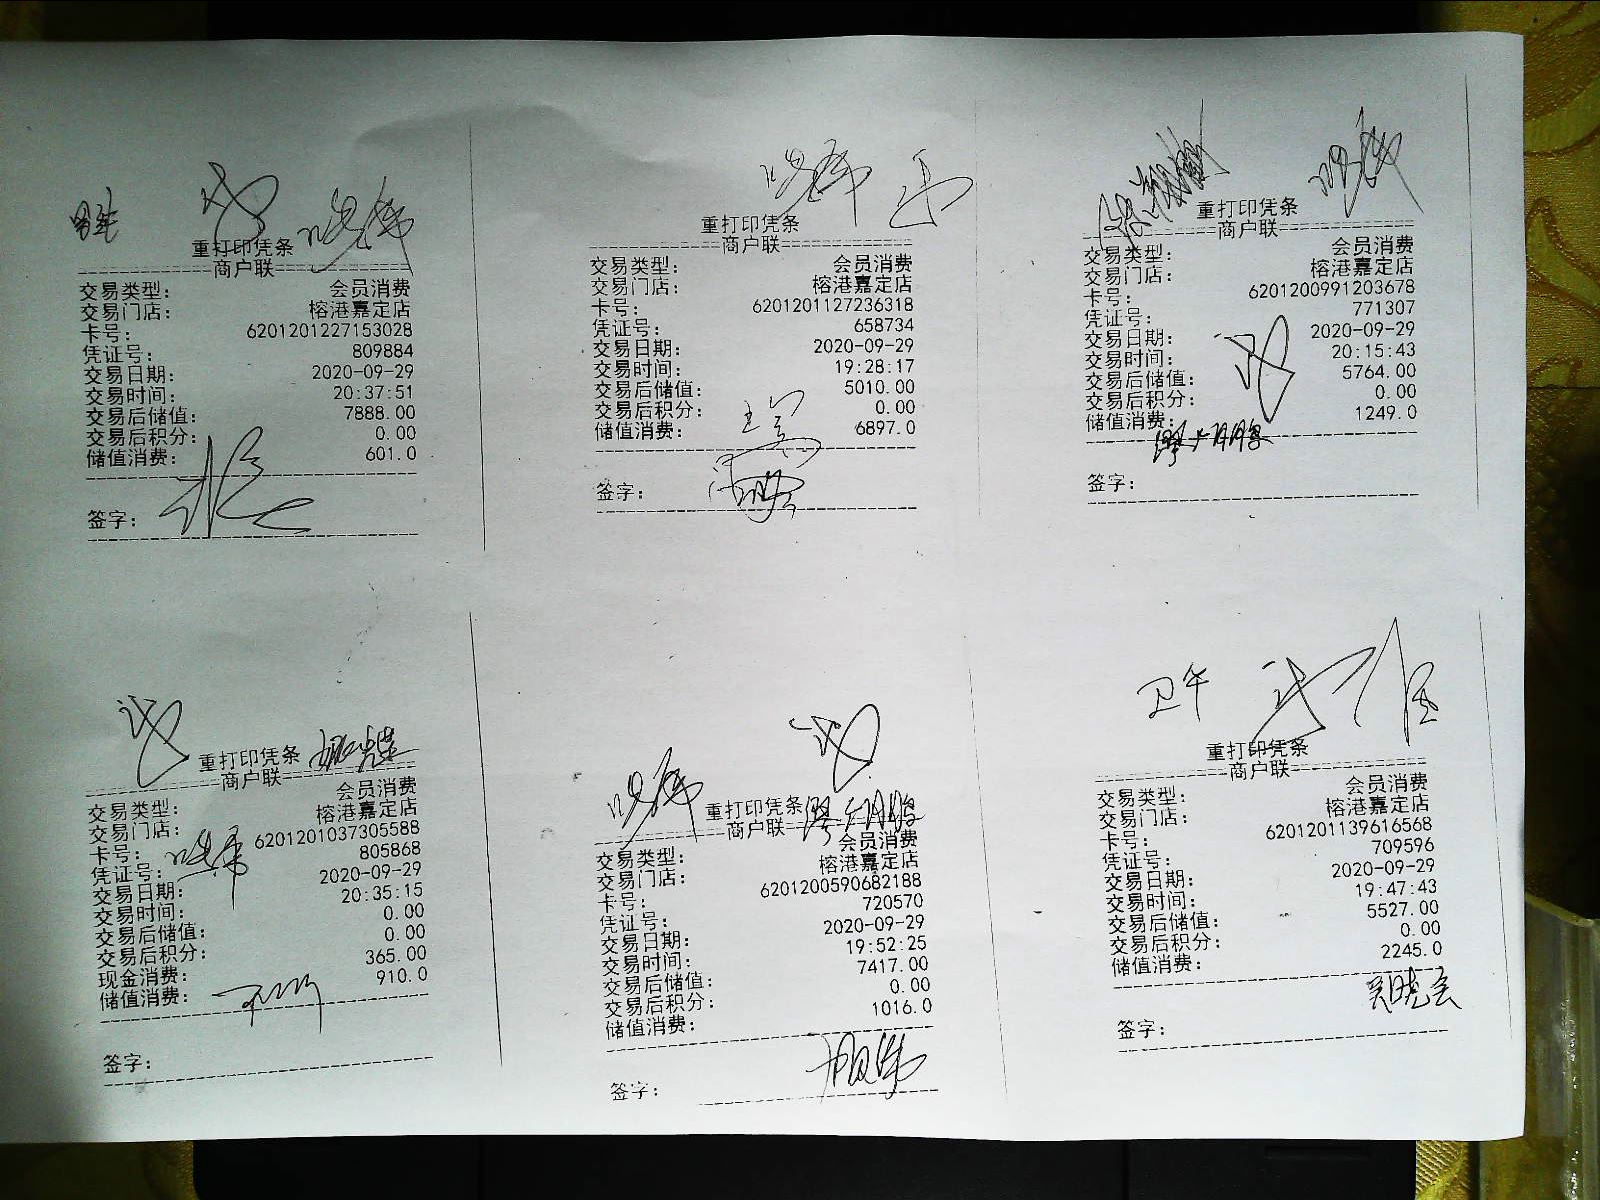 重打印凭条
商户联
交易类型： 会员消费
交易门店： 榕港嘉定店
卡号： 6201201227153028
凭证号： 809884
交易日期： 2020-09-29
交易时间： 20:37:51
交易后储值： 7888.00
交易后积分： 0.00
储值消费： 601.0
签字：
重打印凭条
商户联
交易类型： 会员消费
交易门店： 榕港嘉定店
卡号： 6201201127236318
凭证号： 658734
交易日期： 2020-09-29
交易时间： 19:28:17
交易后储值： 5010.00
交易后积分： 0.00
储值消费： 6897.0
签字：
重打印凭条
商户联
交易类型： 会员消费
交易门店： 榕港嘉定店
卡号： 6201200991203678
凭证号： 771307
交易日期： 2020-09-29
交易时间： 20:15:43
交易后储值： 5764.00
交易后积分： 0.00
储值消费： 1249.0
签字：
重打印凭条
商户联
交易类型： 会员消费
交易门店： 榕港嘉定店
卡号： 6201201037305588
凭证号： 805868
交易日期： 2020-09-29
交易时间： 20:35:15
交易后储值： 0.00
交易后积分： 0.00
现金消费： 365.00
储值消费： 910.0
签字：
重打印凭条
商户联
交易类型： 会员消费
交易门店： 榕港嘉定店
卡号： 6201200590682188
凭证号： 720570
交易日期： 2020-09-29
交易时间： 19:52:25
交易后储值： 7417.00
交易后积分： 0.00
储值消费： 1016.0
签字：
卫午
重打印凭条
商户联
交易类型： 会员消费
交易门店： 榕港嘉定店
卡号： 6201201139616568
凭证号： 709596
交易日期： 2020-09-29
交易时间： 19:47:43
交易后储值： 5527.00
交易后积分： 0.00
储值消费： 2245.0
签字：